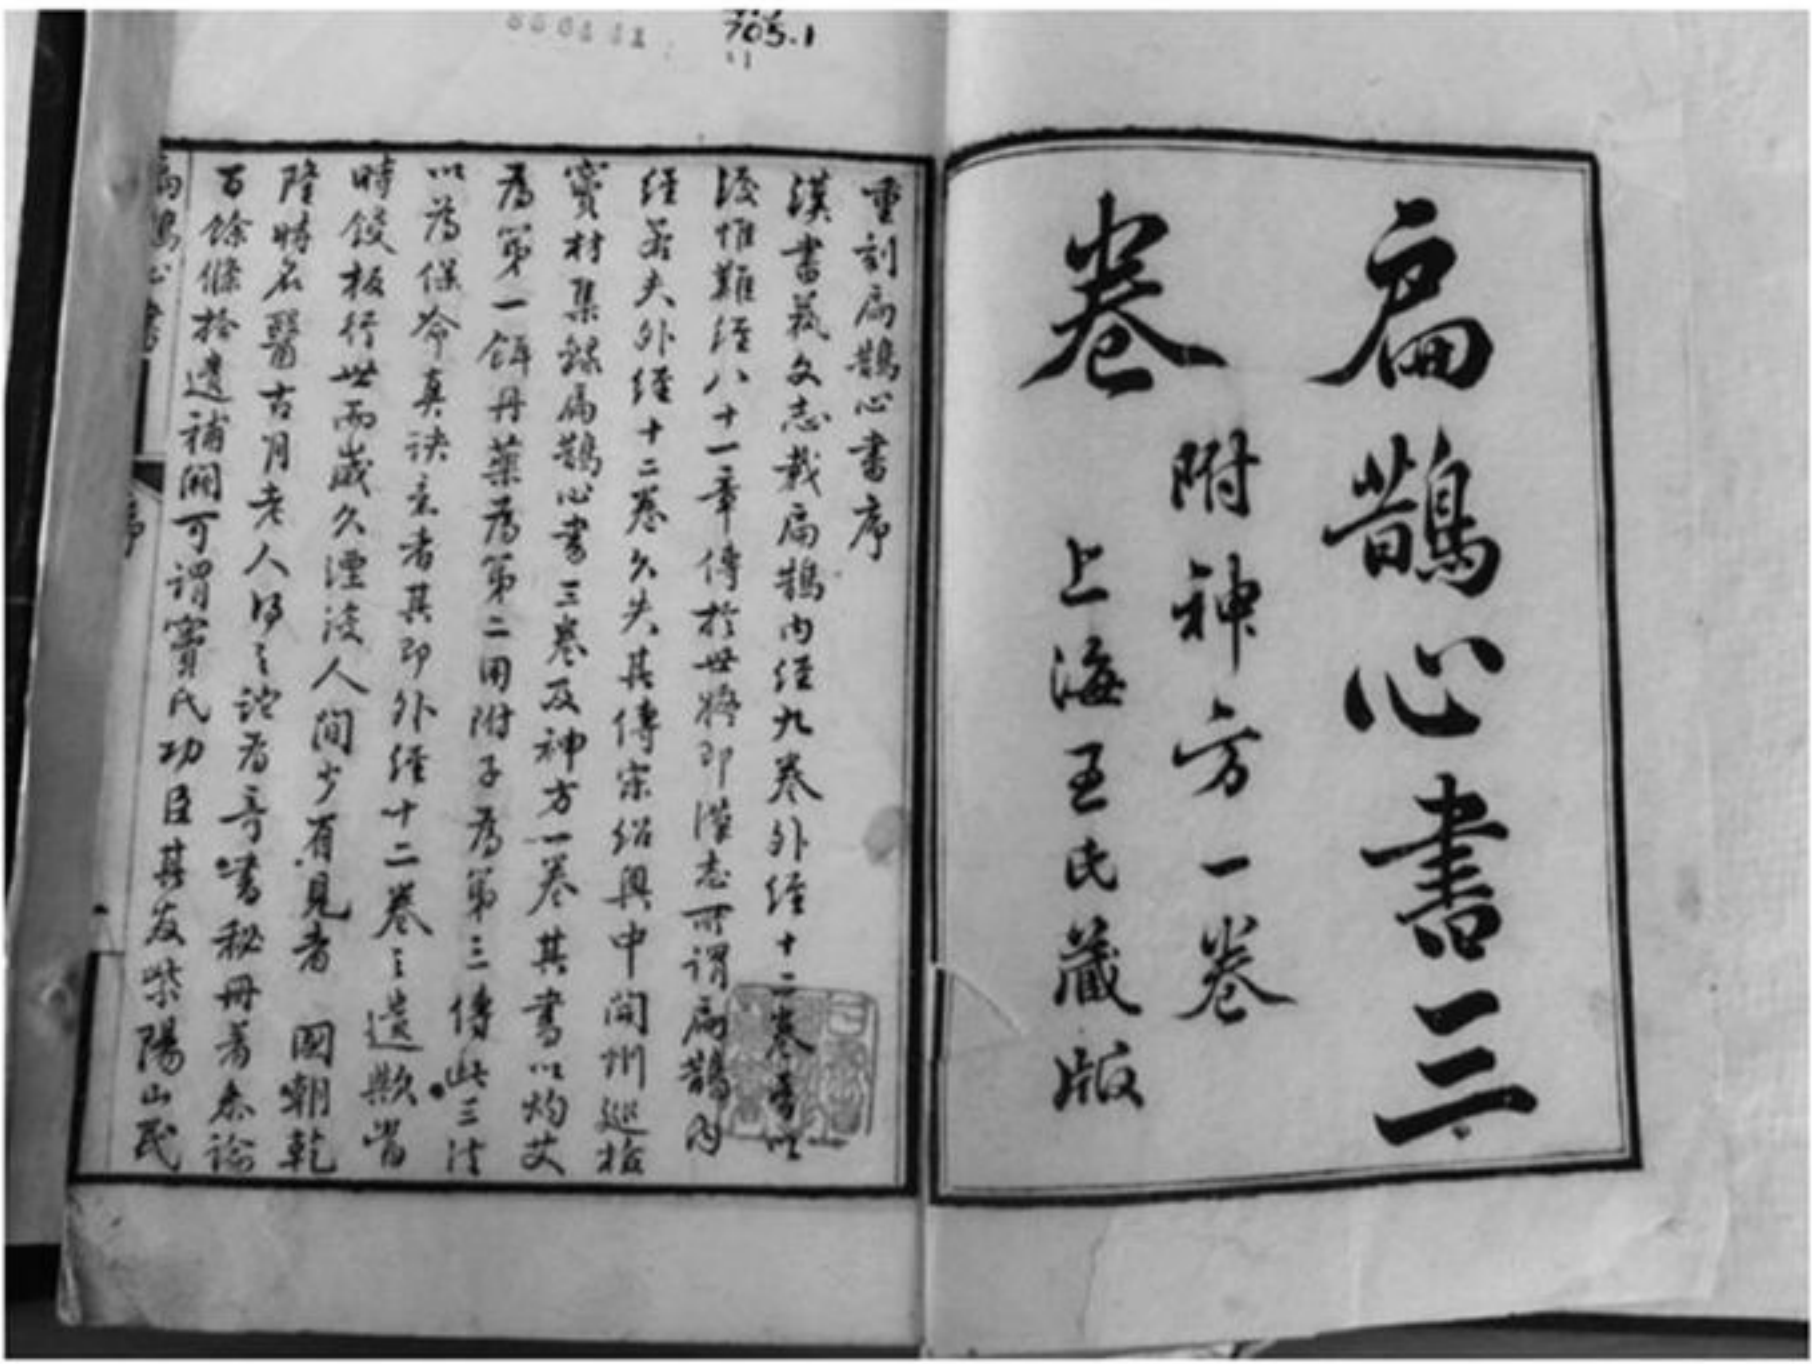 扁鵲心書三
卷
附神方一卷
上海王氏藏版
705.1
重刻扁鵲心書序
漢書藝文志載扁鵲內經九卷外經十二卷
後惟難經八十一章傳於世將即漢志所謂扁鵲內
經若夫外經十二卷久失其傳宋紹興中開州巡檢
竇材集錄扁鵲心書三卷及神方一卷其書以灼艾
為第一餌丹藥為第二用附子為第三傳此三法
以為保命真訣意者其即外經十二卷之遺歟當
時鋟板行世而歲久湮沒人間少有見者 國朝乾
隆時名醫古月老人得之詫為奇書秘冊著叅論
百餘條拾遺補闕可謂竇氏功臣其友柴陽山民
扁鵲心書
序